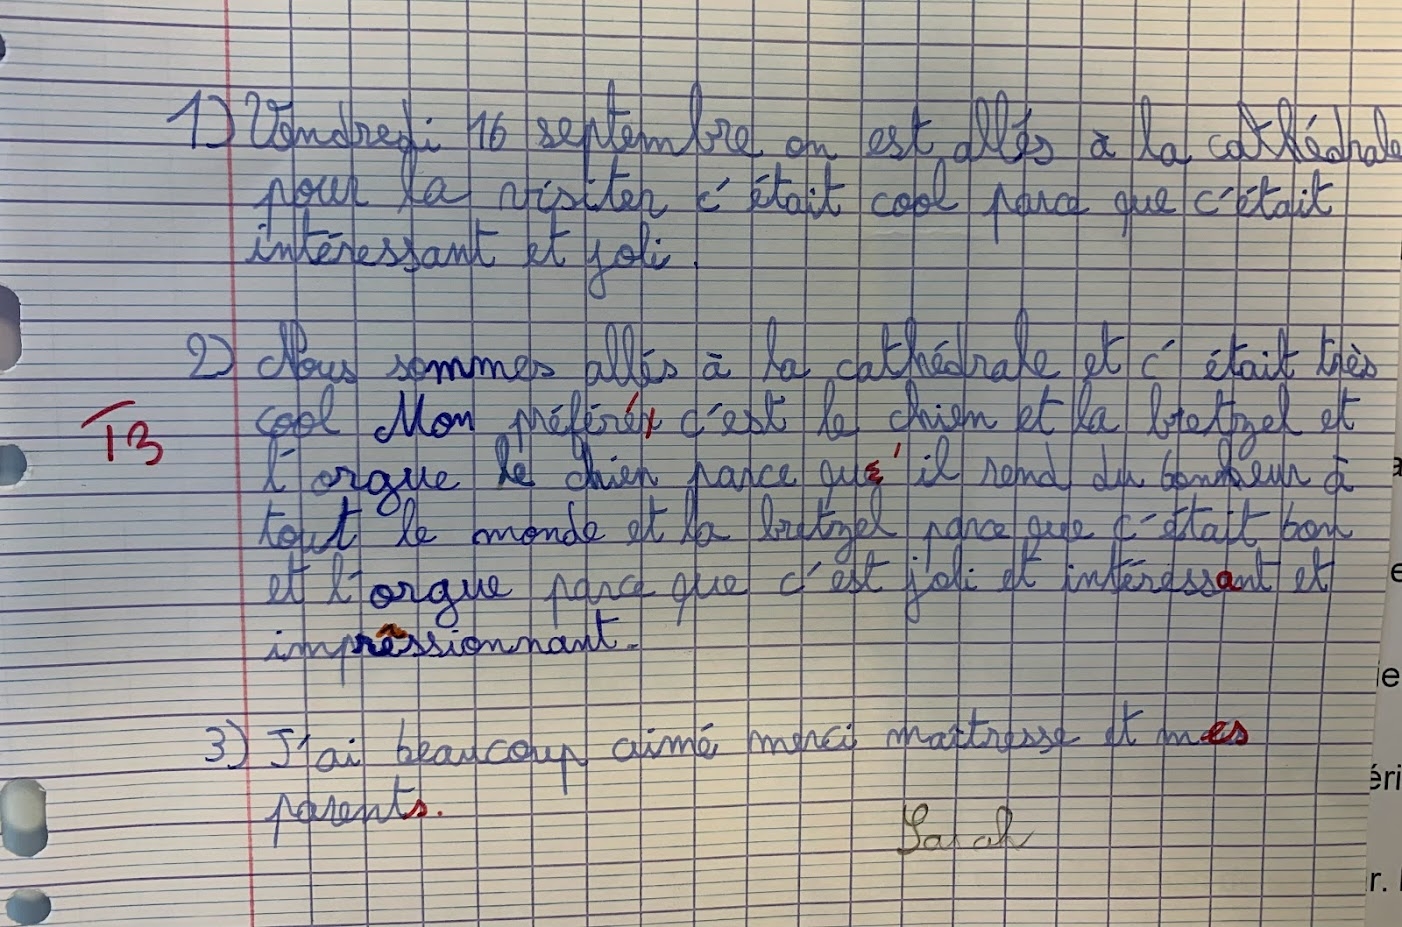 1) Vendredi 16 septembre on est allés à la cathédrale
pour la visiter c'était cool parce que c'était
intéressant et joli.
2) Nous sommes allés à la cathédrale et c'était très
cool Mon préféré c'est le chien et la bretzel et
TB
l'orgue le chien parce qu'il rend du bonheur à
tout le monde et la bretzel parce que c'était bon
et l'orgue parce que c'est joli et intéressant et
impressionnant.
3) J'ai beaucoup aimé merci maîtresse et mes
parents.
Sarah
éri
r.